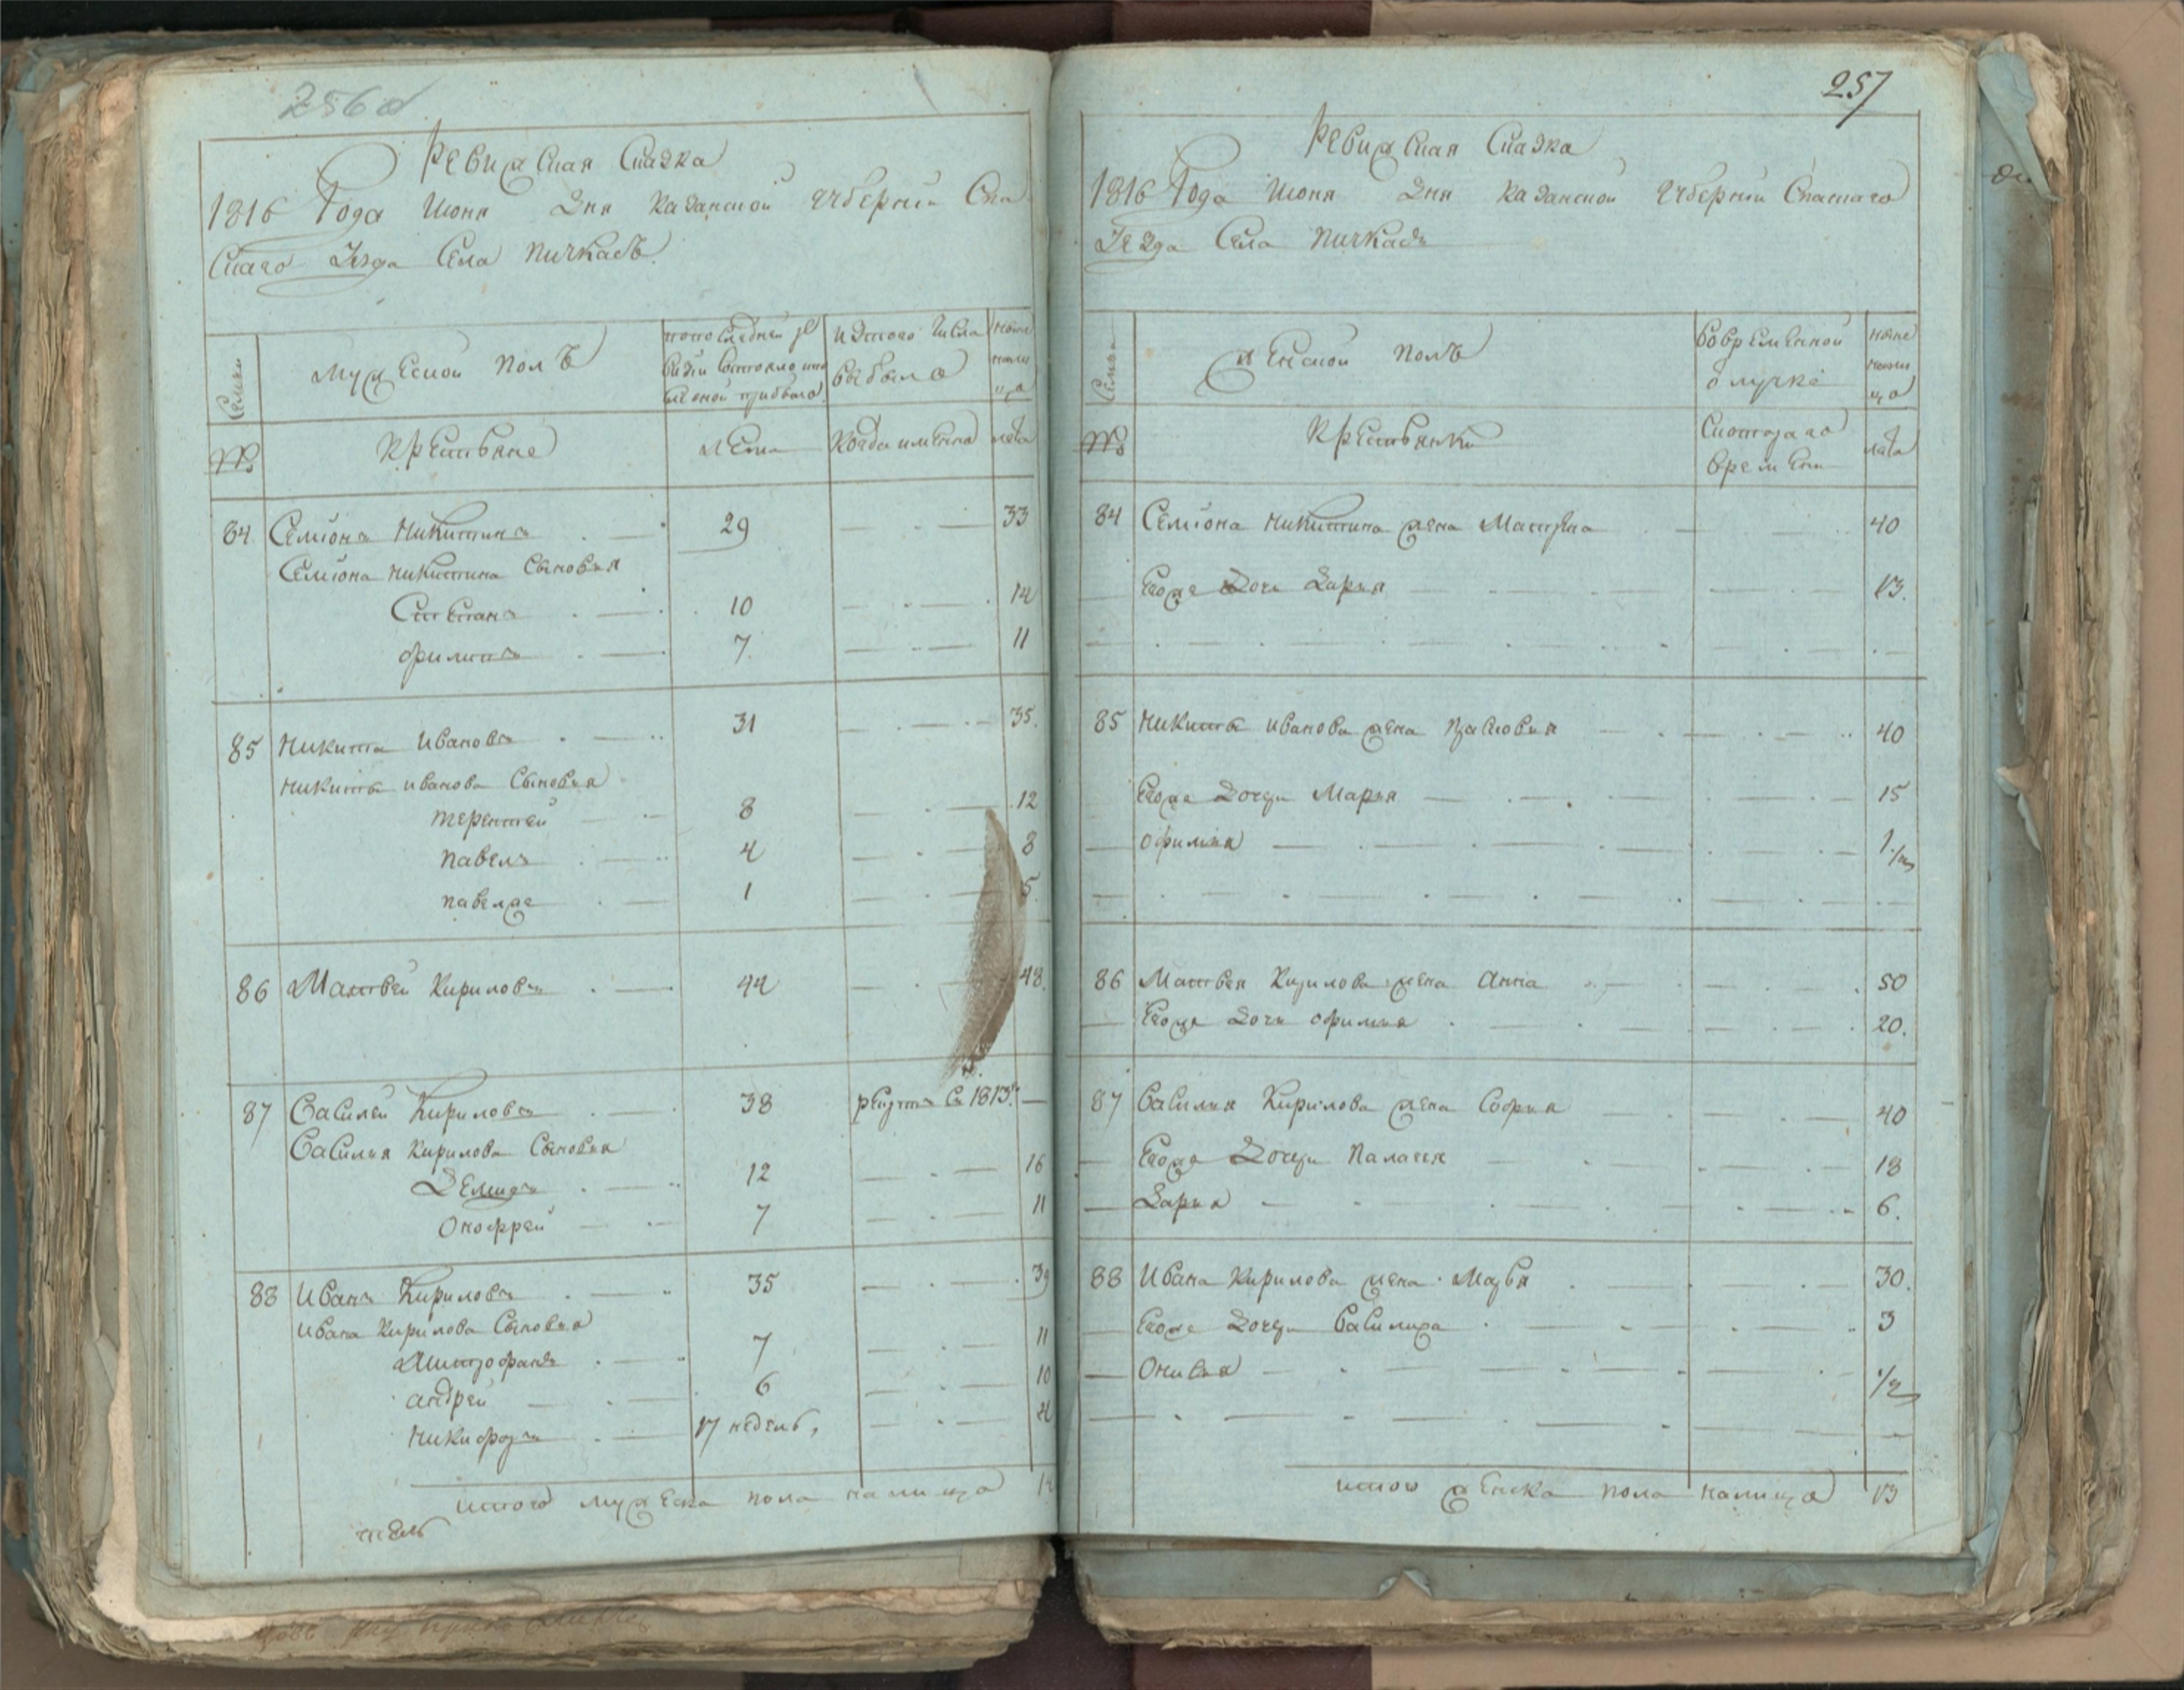 256 об
Ревижская Сказка
1816 Года Июня Дня Казанской Губернии Спа
Скаго Уезда Села Пичкасъ
Семьи
Мужеской полъ
по последней ре
визіи состояло и по
сле оной прибыло
изтого числа
выбыло
ныне
нали
цо
№
Крестьяне
лета
Когда имянно
лета
84 Семіонъ Никитинъ 29 33
Семіона Никитина Сыновья
Степанъ 10 14
Филипъ 7 11
85 Никита Ивановъ 31 35
Никиты Иванова Сыновья
Терентей 8 12
Павелъ 4 8
Павелже 1 5
86 Матвей Кириловъ 44 48
87 Василей Кириловъ 38 рекрутъ въ 1813
Василья Кирилова Сыновья
Демидъ 12 16
Оноффрей 7 11
88 Иванъ Кириловъ 35 39
Ивана Кирилова Сыновья
Митрофанъ 7 11
Андрей 6 10
Никифоръ 17 недель 4
итого мужеска пола налицо 14
257
Ревижская Сказка
1816 Года Июня Дня Казанской Губернии Спаскаго
Уезда Села Пичкасъ
Семьи
Женской полъ
Вовременной
отлучке
ныне
нали
цо
№
Крестьянки
Скотораго
времени
лета
84 Семіона Никитина жена Матрена 40
Егоже Дочь Дарья 13
85 Никиты Иванова жена Прасковья 40
Егоже Дочери Марья 15
Офимья 1/2
86 Матвея Кирилова жена Анна 50
Егоже Дочь Офимья 20
87 Василья Кирилова жена Софья 40
Егоже Дочери Палагея 18
Дарья 6
88 Ивана Кирилова жена Мавра 30
Егоже Дочери Василиса 3
Онисья 1/2
итого женска пола налицо 13